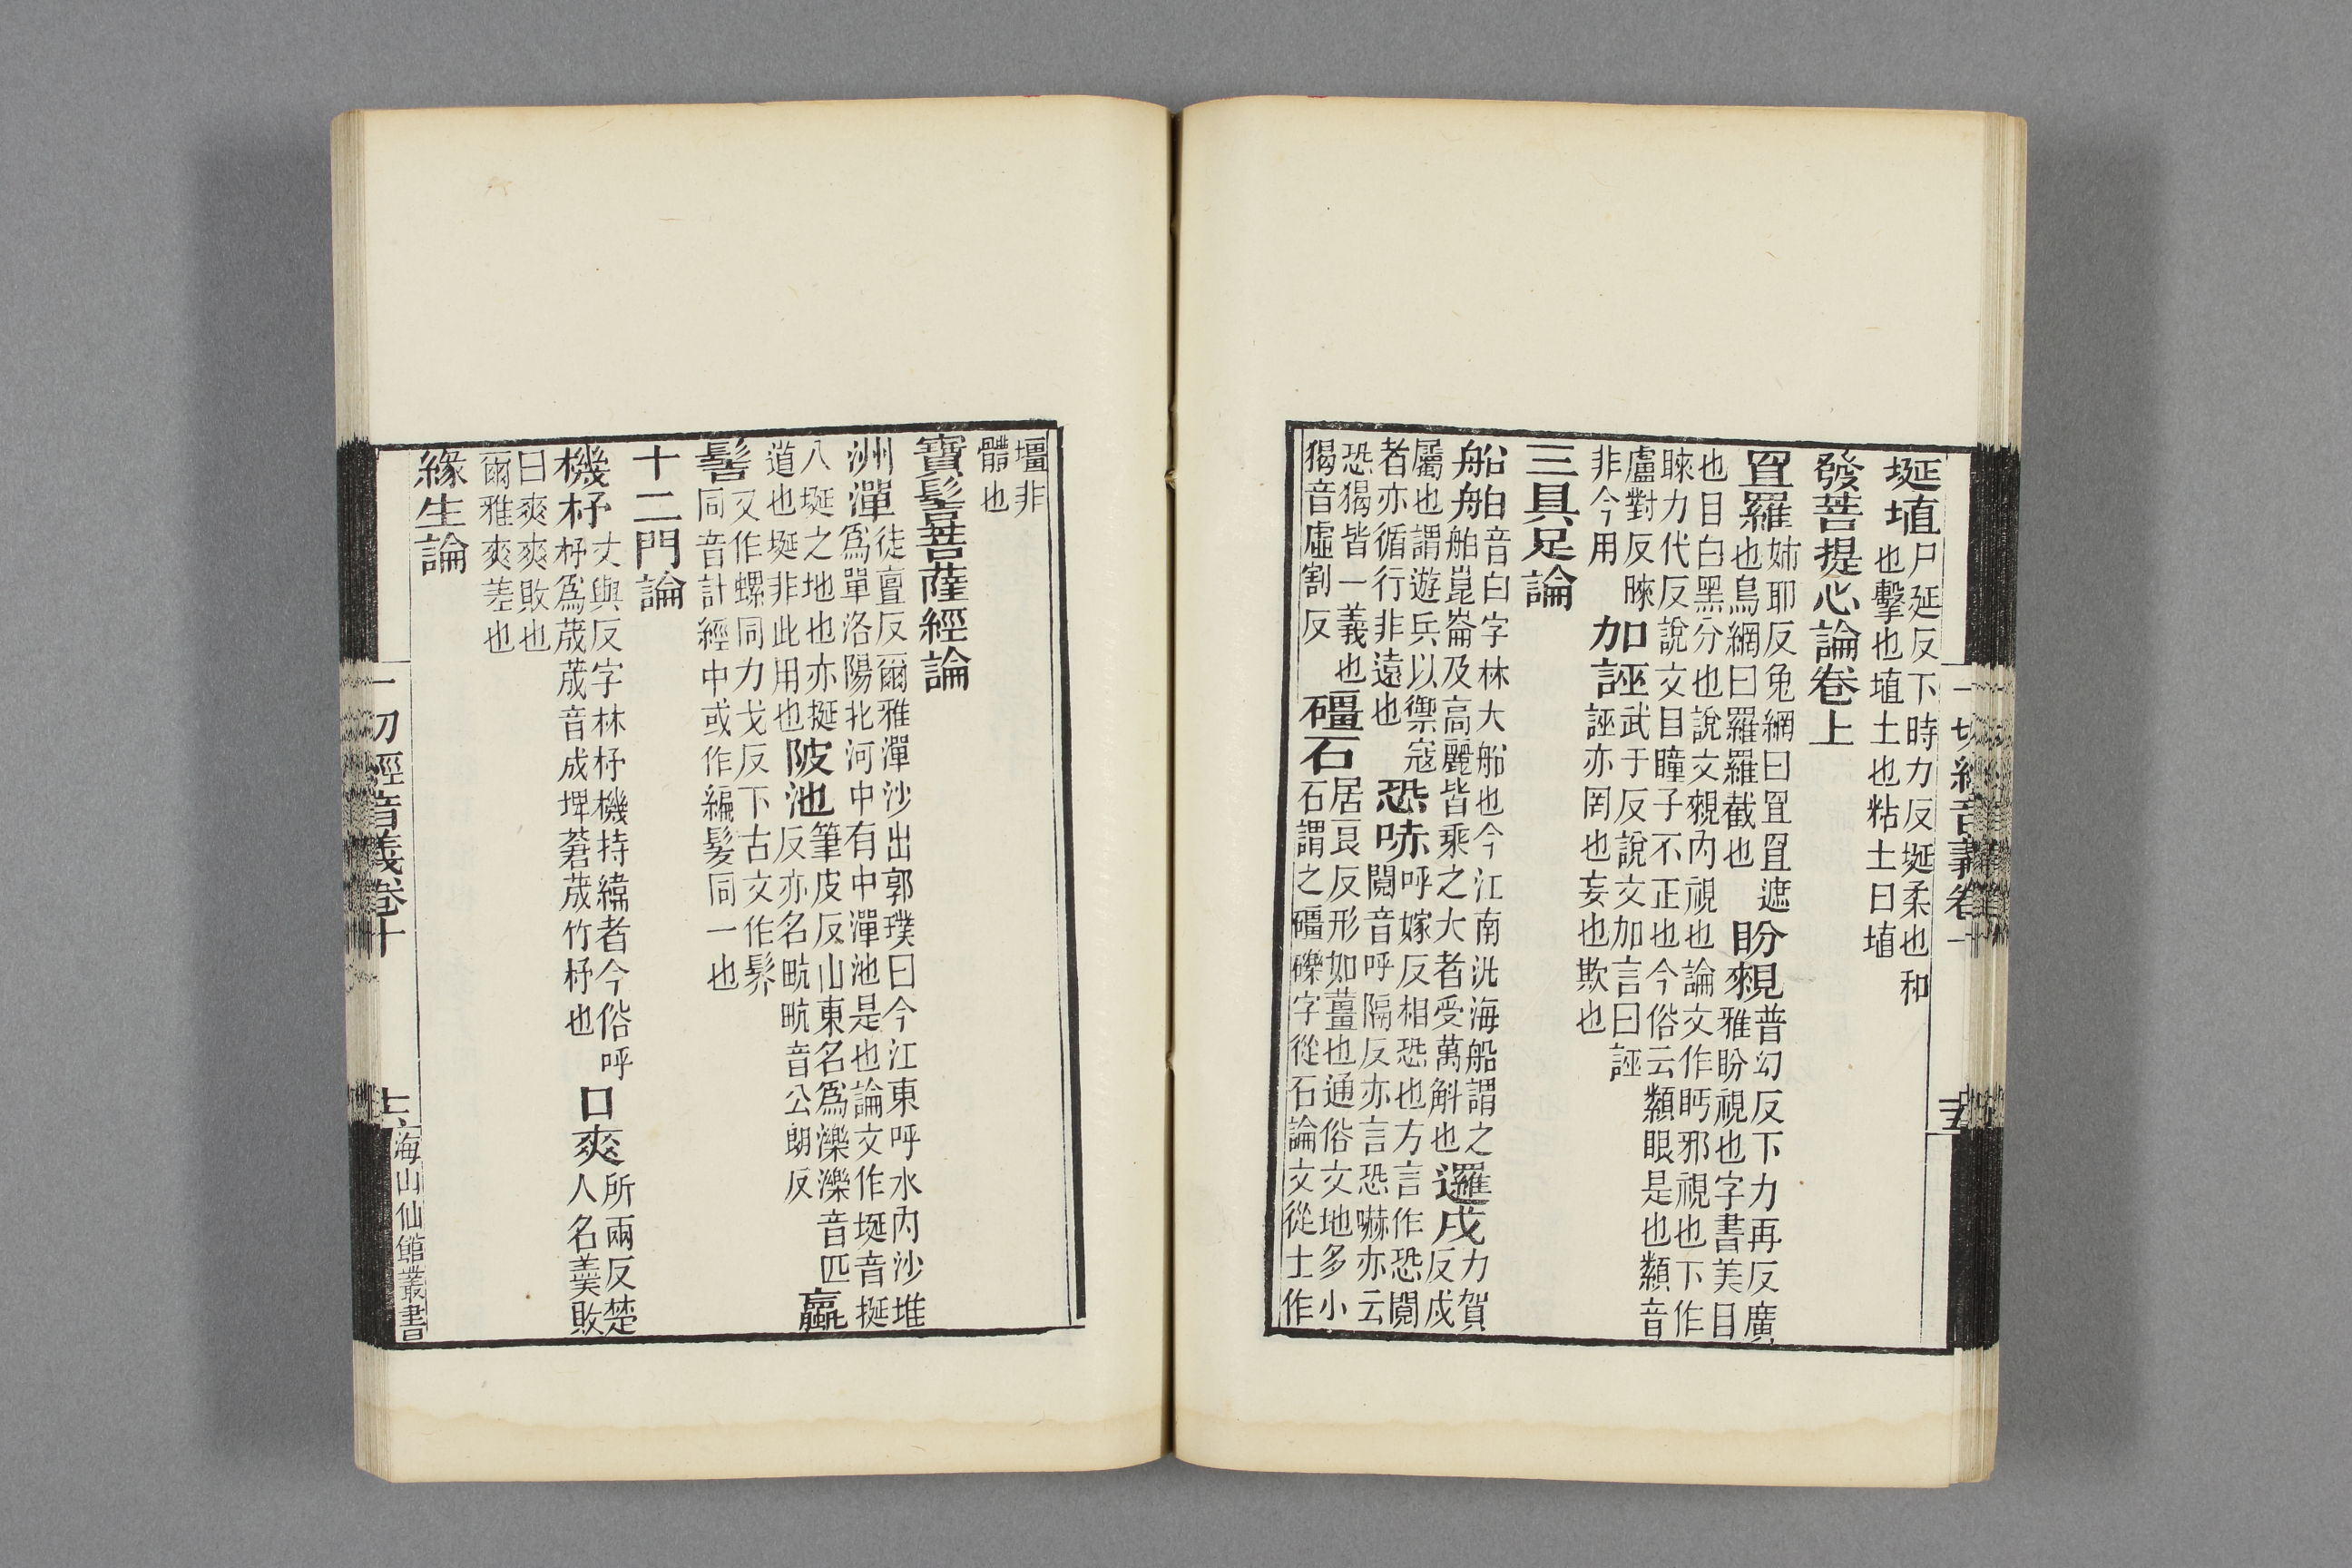 埏埴尸延反下時力反埏柔也和
也擊也埴土也粘土曰埴
發菩提心論卷上
罝羅姊耶反兔網曰罝罝遮
也鳥網曰羅羅截也
盼䚅普幻反下力再反廣
雅盼視也字書美目
也目白黑分也說文䚅內視也論文作眄邪視也下作
睞力代反說文目瞳子不正也今俗云纇眼是也纇音
盧對反睞
非今用
加誣武于反說文加言曰誣
誣亦罔也妄也欺也
三具足論
船舶音白字林大船也今江南汎海船謂之
舶崑崙及高麗皆乘之大者受萬斛也
邏戍力賀
反戍
屬也謂遊兵以禦寇
者亦循行非遠也
恐哧呼嫁反相恐也方言作恐鬩
鬩音呼隔反亦言恐嚇亦云
恐猲皆一義也
猲音虛割反
礓石居艮反形如薑也通俗文地多小
石謂之礓礫字從石論文從土作
一切經音義卷十
十五
壃非
體也
寶髻菩薩經論
洲潬徒亶反爾雅潬沙出郭璞曰今江東呼水內沙堆
爲單洛陽北河中有中潬池是也論文作埏音挻
八埏之地也亦挻
道也埏非此用也
陂池筆皮反山東名爲濼濼音匹
反亦名甿甿音公朗反
蠃
髻又作螺同力戈反下古文作髻
同音計經中或作編髮同一也
十二門論
機杼丈與反字林杼機持緯者今俗呼
杼爲筬筬音成埤蒼筬竹杼也
口爽所兩反楚
人名羹敗
曰爽爽敗也
爾雅爽差也
緣生論
一切經音義卷十
十六
海山仙館叢書